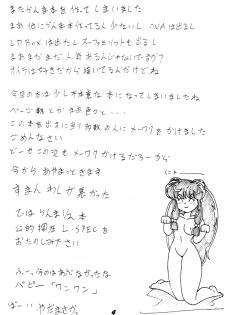 またらんま本を作ってしまいました
まあ 他にらんま本作ってるし 少ないし OVAは出るし
LDBOXは出たし スーファミソフトも出るし
まあまだまだ人気あるんじゃないですか?
オレらは好きだから描いてるんだけどね
今回の本は少し不本意な本になってしまいましたね
ページ数とかまあ色々と…
この本を出すに当り多数の人にメーワクをかけました
ごめんなさい
どーせこの次もメーワクかけるだろーから
今からあやまっときます
すまんわしが悪かった
ではらんま1/2本
公的抑圧L-SPECを
おたのしみ下さい
ふー、今のはあぶなかったな
ベビー「ワンワン」
ばーい やだまさか。
4